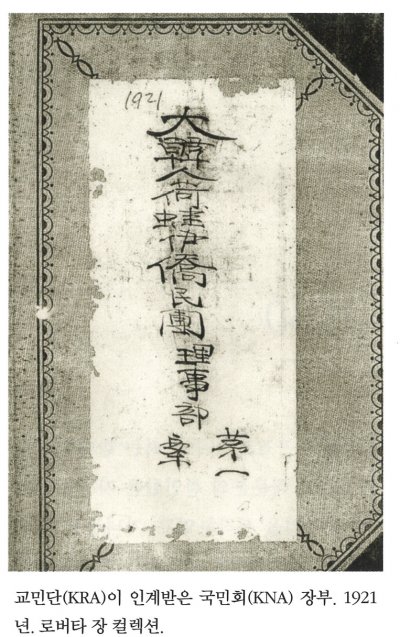 1921
大韓人荷蛙伊僑民團理事部案
苐一
교민단(KRA)이 인계받은 국민회(KNA) 장부. 1921
년. 로버타 장 컬렉션.